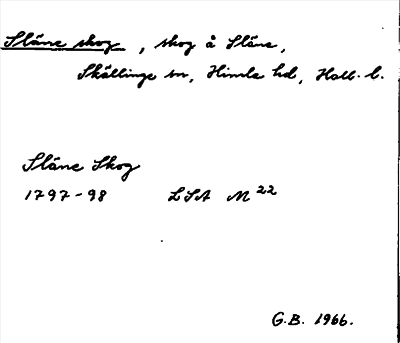 Släne skog, skog å Släne,
Skällinge sn, Himle hd, Hall. l.
Släne Skog
1797-98 LSA M 22
G.B. 1966.